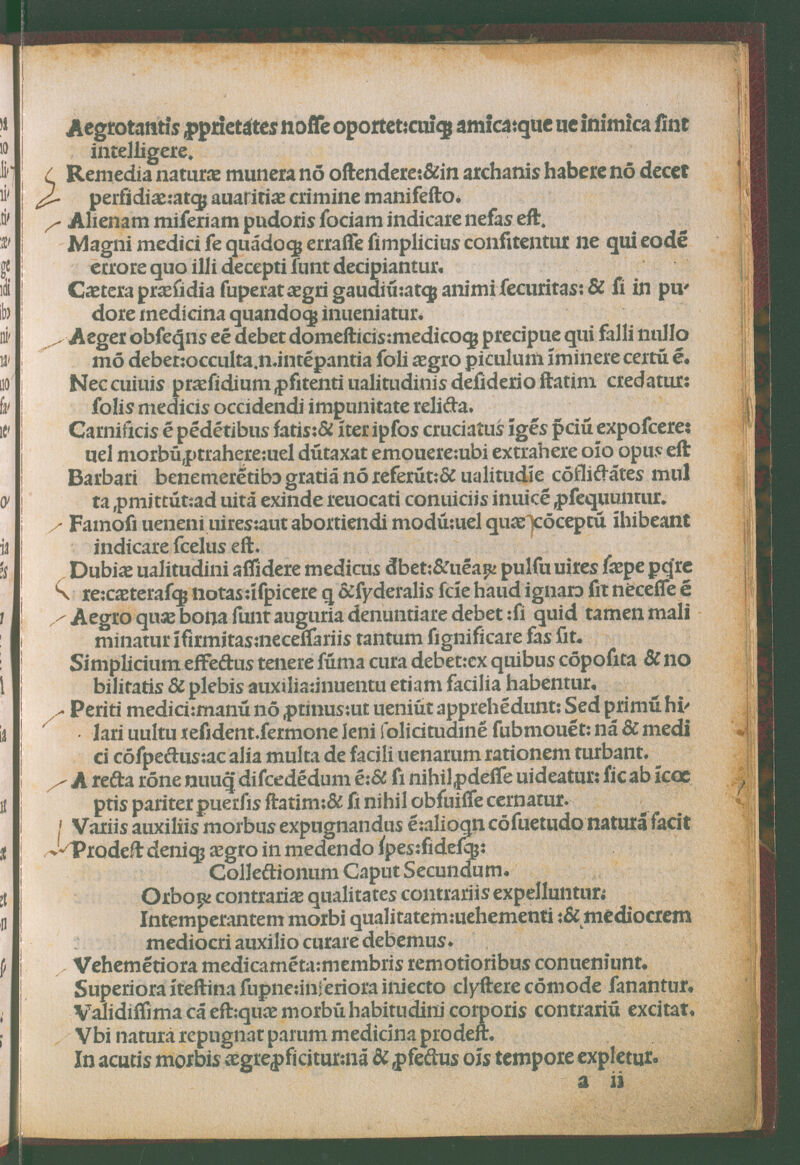 Aegrotantis ꝓprietátes nosse oportet:cuiqȝ amica:que ue inimica sint
intelligere.
Remedia naturæ munera nō ostendere:&in archanis habere nō decet
perfidiæ:atqȝ auaritiæ crimine manifesto.
Alienam miseriam pudoris sociam indicare nefas est.
Magni medici se quādoqȝ errasse simplicius confitentur ne qui eodē
errore quo illi decepti sunt decipiantur.
Cætera præsidia superat ægri gaudiū:atqȝ animi securitas: & si in pu-
dore medicina quandoqȝ inueniatur.
Aeger obseq̄ns eē debet domesticis:medicoqȝ precipue qui falli nullo
mō debet:occulta.n.intēpantia soli ægro piculum īminere certū ē.
Nec cuiuis præsidium ꝓfitenti ualitudinis desiderio statim credatur:
solis medicis occidendi impunitate relicta.
Carnificis ē pēdētibus fatis:& iter ipsos cruciatus īgēs p̄ciū exposcere:
uel morbū ꝓtrahere:uel dūtaxat emouere:ubi extrahere oīo opus est
Barbari benemerētibꝰ gratiā nō referūt:& ualitudīe cōflictátes mul
ta ꝓmittūt:ad uitā exinde reuocati conuiciis inuicē ꝓsequuntur.
Famosi ueneni uires:aut abortiendi modū:uel quæ ꝯcōceptū īhibeant
indicare scelus est.
Dubiæ ualitudini assidere medicus dbet:&uēaꝝ pulsu uires sæpe pq̄re
re:cæterasqȝ notas:īspicere q &syderalis scīe haud ignarꝰ sit necesse ē
Aegro quæ bona sunt auguria denuntiare debet :si quid tamen mali
minatur īfirmitas:necessariis tantum significare fas sit.
Simplicium effectus tenere sūma cura debet:ex quibus cōposita & no
bilitatis & plebis auxilia:inuentu etiam facilia habentur.
Periti medici:manū nō ꝓtinus:ut ueniūt apprehēdunt: Sed primū hi-
lari uultu resident.sermone leni solicitudinē submouēt: nā & medi
ci cōspectus:ac alia multa de facili uenarum rationem turbant.
A recta rōne nuuq̄ discedēdum ē:& si nihil ꝓdesse uideatur: sic ab īcœ
ptis pariter puersis statim:& si nihil obfuisse cernatur.
Variis auxiliis morbus expugnandus ē:alioqn cōsuetudo naturā facit
Prodest deniqȝ ægro in medendo spes:fidesqȝ:
Collectionum Caput Secundum.
Orboꝝ contrariæ qualitates contrariis expelluntur:
Intemperantem morbi qualitatem:uehementi :& mediocrem
mediocri auxilio curare debemus.
Vehemētiora medicamēta:membris remotioribus conueniunt.
Superiora ītestina supne:inferiora iniecto clystere cōmode sanantur.
Validissima cā est:quæ morbū habitudini corporis contrariū excitat.
Vbi natura repugnat parum medicina prodest.
In acutis morbis ægre ꝓficitur:nā & ꝓfectus oīs tempore expletur.
a ii